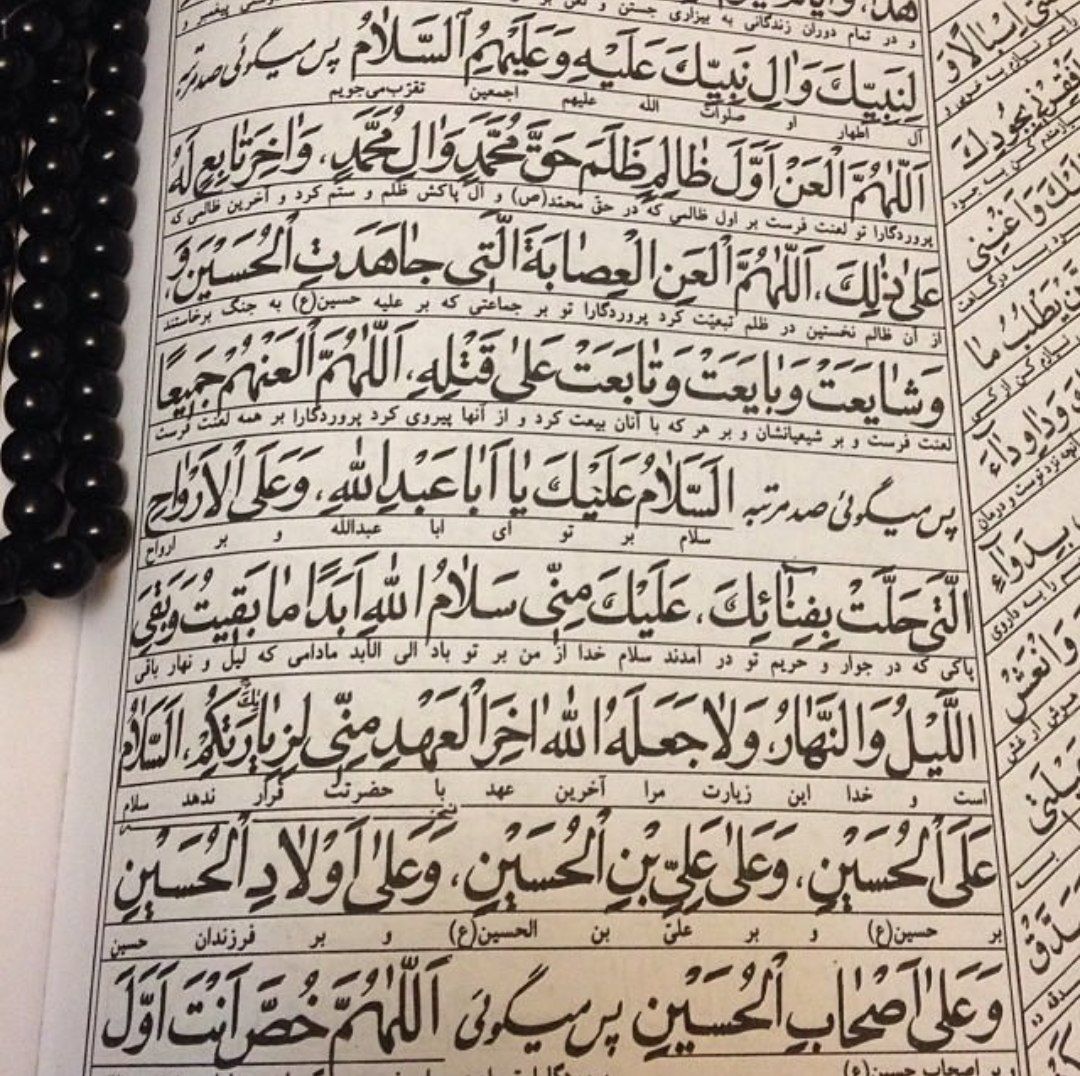 و در تمام دوران زندگانی به بیزاری جستن و لعن بر
لِنَبِیِّكَ وَالِ نَبِیِّكَ عَلَیْهِ وَعَلَیْهِمُ اَلسَّلاٰمُ پس میگوئی صد مرتبه
آل اطهار او صلوات الله علیهم اجمعین تقرّب می‌جویم
اَللّٰهُمَّ الْعَنْ اَوَّلَ ظٰالِمٍ ظَلَمَ حَقَّ مُحَمَّدٍ وَالِ مُحَمَّدٍ، وَاٰخِرَ تٰابِعٍ لَهُ
پروردگارا تو لعنت فرست بر اول ظالمی که در حقّ محمّد(ص) و آل پاکش ظلم و ستم کرد و آخرین ظالمی که
عَلیٰ ذٰلِكَ، اَللّٰهُمَّ الْعَنِ الْعِصٰابَةَ الَّتی جٰاهَدَتِ الْحُسَیْنَ، وَ
از آن ظالم نخستین در ظلم تبعیّت کرد پروردگارا تو بر جماعتی که بر علیه حسین(ع) به جنگ برخاستند
وَشٰایَعَتْ وَبٰایَعَتْ وَتٰابَعَتْ عَلیٰ قَتْلِهِ، اَللّٰهُمَّ الْعَنْهُمْ جَمیعًا
لعنت فرست و بر شیعیانشان و بر هر که با آنان بیعت کرد و از آنها پیروی کرد پروردگارا بر همه لعنت فرست
پس میگوئی صد مرتبه اَلسَّلاٰمُ عَلَیْكَ یٰا اَبٰا عَبْدِ اللّٰهِ، وَعَلَی الْاَرْوٰاحِ
سلام بر تو ای ابا عبدالله و بر ارواح
الَّتی حَلَّتْ بِفِنٰائِكَ، عَلَیْكَ مِنّی سَلاٰمُ اللّٰهِ اَبَدًا مٰا بَقیتُ وَبَقِیَ
پاکی که در جوار و حریم تو در آمدند سلام خدا از من بر تو باد الی الأبد مادامی که لیل و نهار باقی
اللَّیْلُ وَالنَّهٰارُ، وَلاٰ جَعَلَهُ اللّٰهُ اٰخِرَ الْعَهْدِ مِنّی لِزِیٰارَتِكُمْ، اَلسَّلاٰمُ
است و خدا این زیارت مرا آخرین عهد با حضرتت قرار ندهد سلام
عَلَی الْحُسَیْنِ، وَعَلیٰ عَلِیِّ بْنِ الْحُسَیْنِ، وَعَلیٰ اَوْلاٰدِ الْحُسَیْنِ
بر حسین(ع) و بر علیّ بن الحسین(ع) و بر فرزندان حسین
وَعَلیٰ اَصْحٰابِ الْحُسَیْنِ پس میگوئی اَللّٰهُمَّ خُصَّ اَنْتَ اَوَّلَ
و بر اصحاب حسین(ع)
بِجُودِكَ
وَاَغْنِنی
یَطْلُبُ مٰا